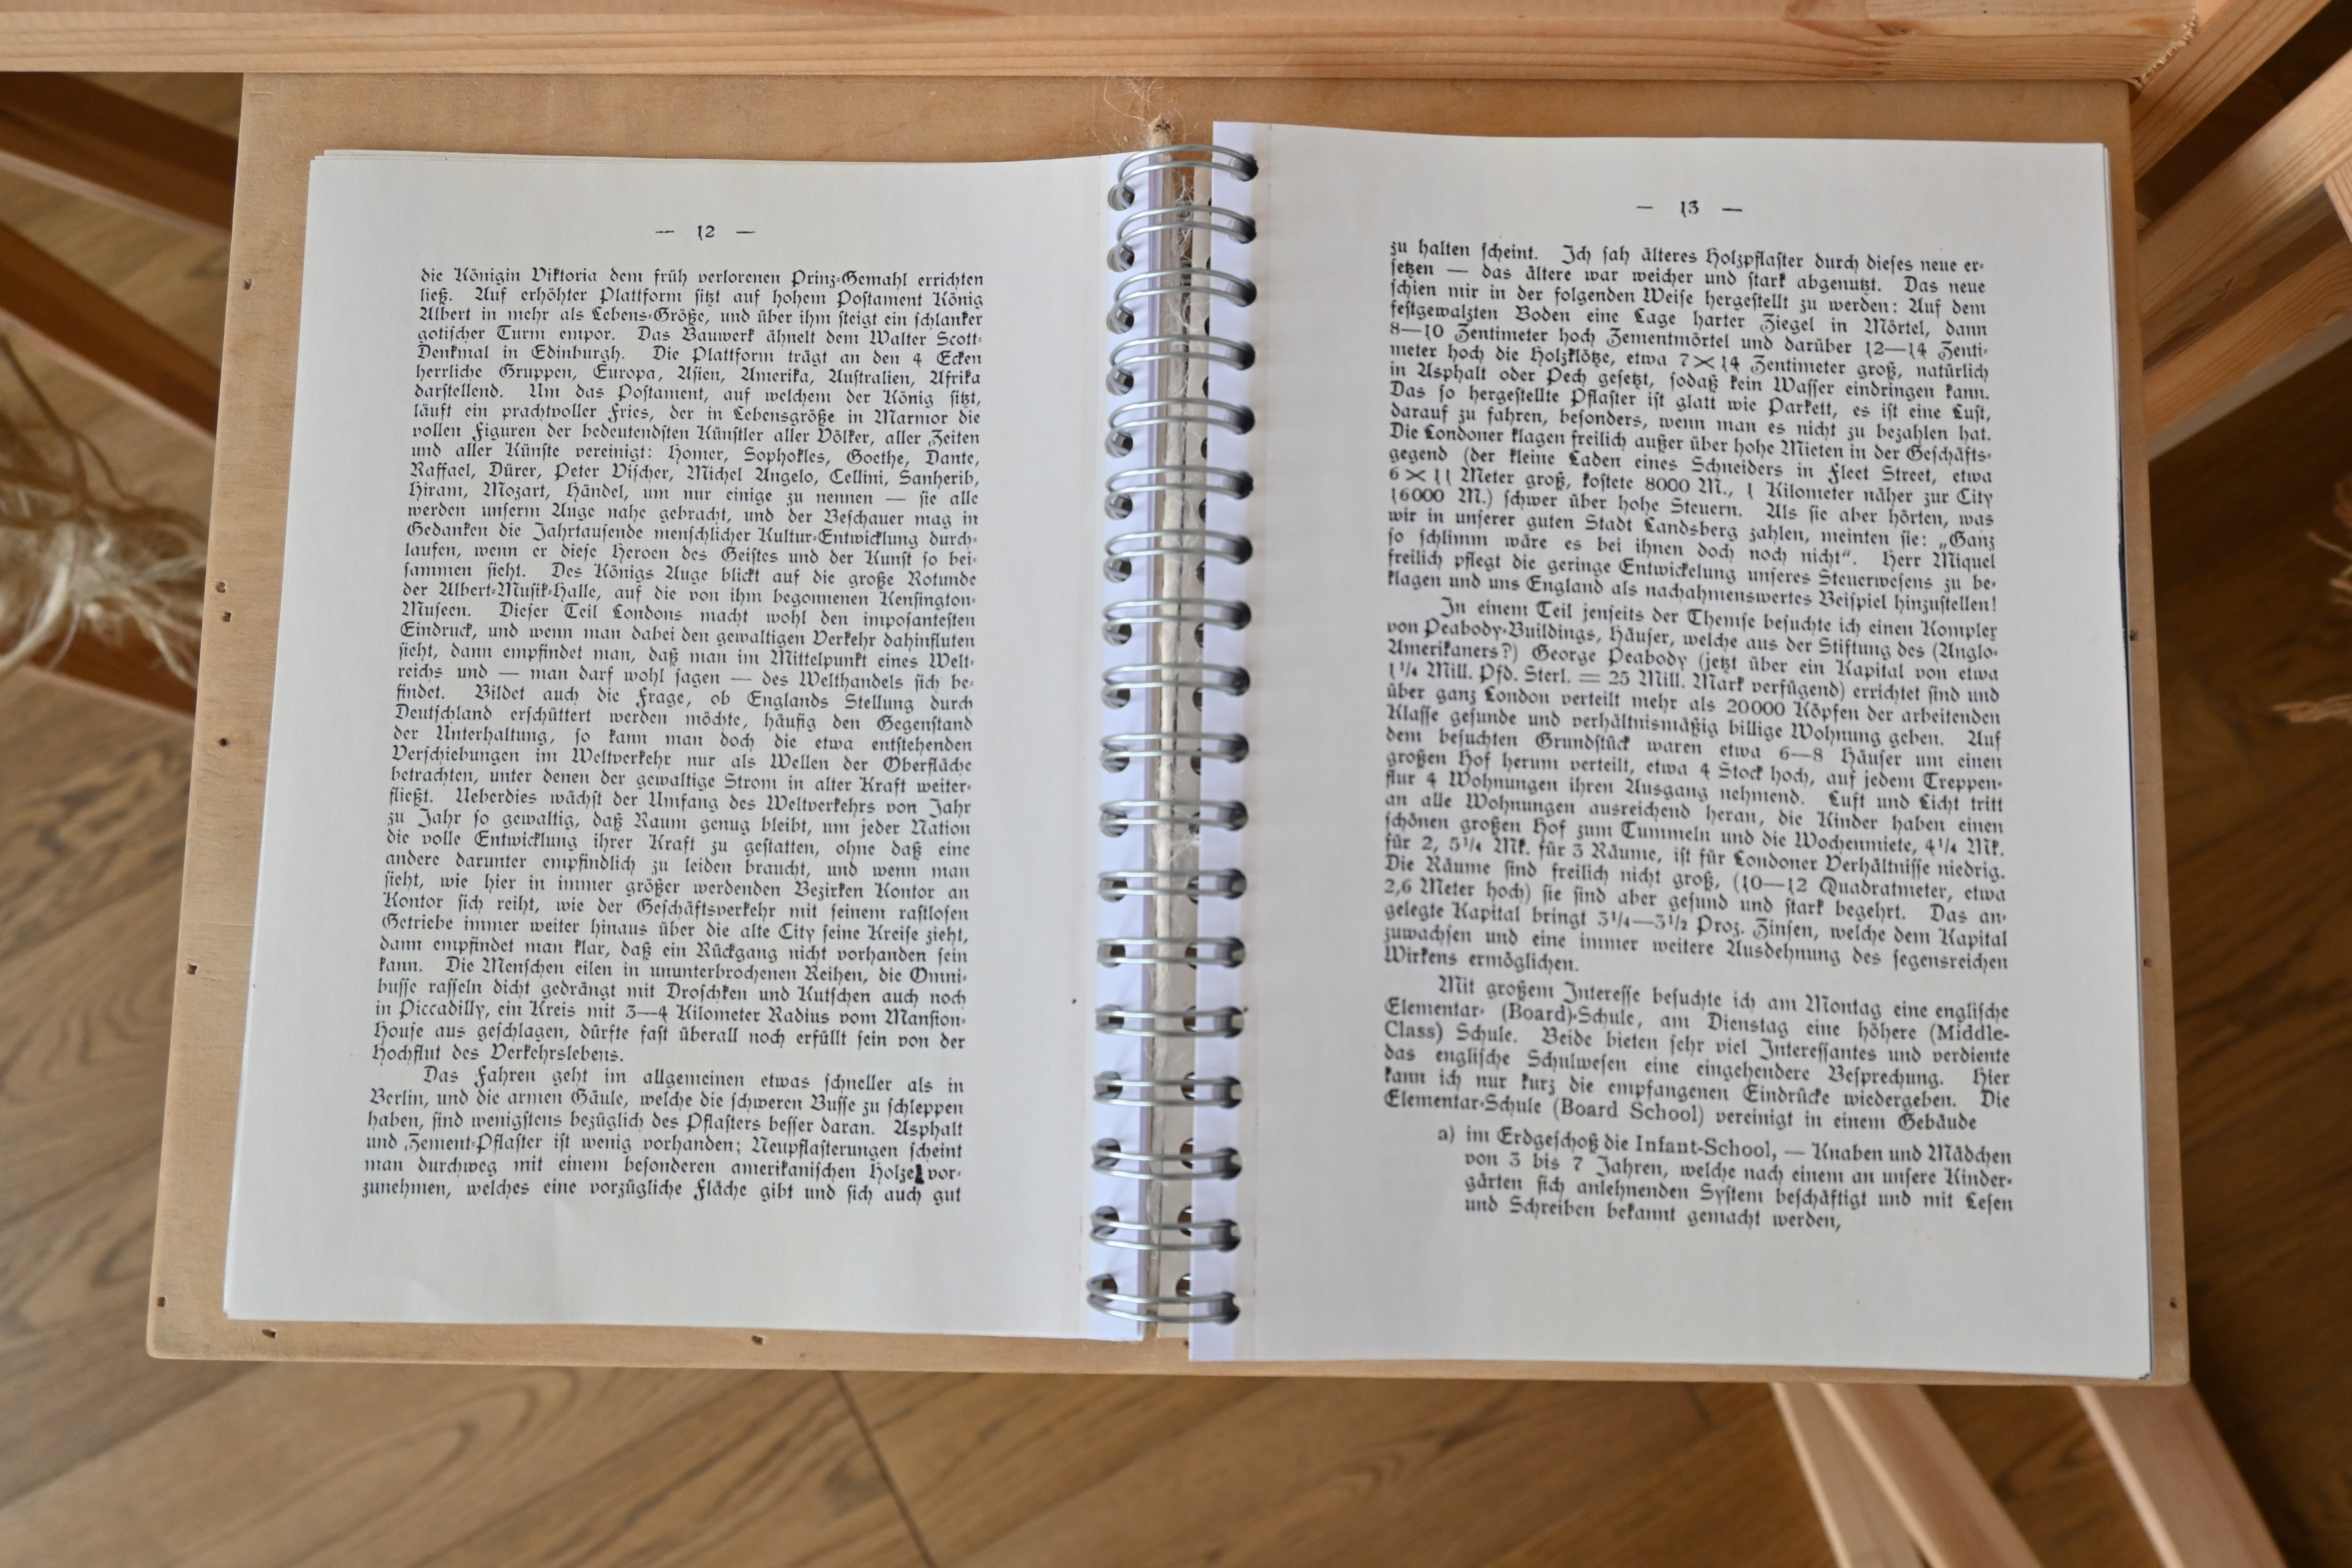 — 12 —
die Königin Viktoria dem früh verlorenen Prinz-Gemahl errichten
ließ. Auf erhöhter Plattform sitzt auf hohem Postament König
Albert in mehr als Lebens-Größe, und über ihm steigt ein schlanker
gotischer Turm empor. Das Bauwerk ähnelt dem Walter Scott-
Denkmal in Edinburgh. Die Plattform trägt an den 4 Ecken
herrliche Gruppen, Europa, Asien, Amerika, Australien, Afrika
darstellend. Um das Postament, auf welchem der König sitzt,
läuft ein prachtvoller Fries, der in Lebensgröße in Marmor die
vollen Figuren der bedeutendsten Künstler aller Völker, aller Zeiten
und aller Künste vereinigt: Homer, Sophokles, Goethe, Dante,
Raffael, Dürer, Peter Vischer, Michel Angelo, Cellini, Sanherib,
Hiram, Mozart, Händel, um nur einige zu nennen — sie alle
werden unserm Auge nahe gebracht, und der Beschauer mag in
Gedanken die Jahrtausende menschlicher Kultur-Entwicklung durch-
laufen, wenn er diese Heroen des Geistes und der Kunst so bei-
sammen sieht. Des Königs Auge blickt auf die große Rotunde
der Albert-Musik-Halle, auf die von ihm begonnenen Kensington-
Museen. Dieser Teil Londons macht wohl den imposantesten
Eindruck, und wenn man dabei den gewaltigen Verkehr dahinfluten
sieht, dann empfindet man, daß man im Mittelpunkt eines Welt-
reichs und — man darf wohl sagen — des Welthandels sich be-
findet. Bildet auch die Frage, ob Englands Stellung durch
Deutschland erschüttert werden möchte, häufig den Gegenstand
der Unterhaltung, so kann man doch die etwa entstehenden
Verschiebungen im Weltverkehr nur als Wellen der Oberfläche
betrachten, unter denen der gewaltige Strom in alter Kraft weiter-
fließt. Ueberdies wächst der Umfang des Weltverkehrs von Jahr
zu Jahr so gewaltig, daß Raum genug bleibt, um jeder Nation
die volle Entwicklung ihrer Kraft zu gestatten, ohne daß eine
andere darunter empfindlich zu leiden braucht, und wenn man
sieht, wie hier in immer größer werdenden Bezirken Kontor an
Kontor sich reiht, wie der Geschäftsverkehr mit seinem rastlosen
Getriebe immer weiter hinaus über die alte City seine Kreise zieht,
dann empfindet man klar, daß ein Rückgang nicht vorhanden sein
kann. Die Menschen eilen in ununterbrochenen Reihen, die Omni-
busse rasseln dicht gedrängt mit Droschken und Kutschen auch noch
in Piccadilly, ein Kreis mit 3—4 Kilometer Radius vom Mansion-
House aus geschlagen, dürfte fast überall noch erfüllt sein von der
Hochflut des Verkehrslebens.
Das Fahren geht im allgemeinen etwas schneller als in
Berlin, und die armen Gäule, welche die schweren Busse zu schleppen
haben, sind wenigstens bezüglich des Pflasters besser daran. Asphalt
und Zement-Pflaster ist wenig vorhanden; Neupflasterungen scheint
man durchweg mit einem besonderen amerikanischen Holze vor-
zunehmen, welches eine vorzügliche Fläche gibt und sich auch gut
— 13 —
zu halten scheint. Ich sah älteres Holzpflaster durch dieses neue er-
setzen — das ältere war weicher und stark abgenutzt. Das neue
schien mir in der folgenden Weise hergestellt zu werden: Auf dem
festgewalzten Boden eine Lage harter Ziegel in Mörtel, dann
8—10 Zentimeter hoch Zementmörtel und darüber 12—14 Zenti-
meter hoch die Holzklötze, etwa 7×14 Zentimeter groß, natürlich
in Asphalt oder Pech gesetzt, sodaß kein Wasser eindringen kann.
Das so hergestellte Pflaster ist glatt wie Parkett, es ist eine Lust,
darauf zu fahren, besonders, wenn man es nicht zu bezahlen hat.
Die Londoner klagen freilich außer über hohe Mieten in der Geschäfts-
gegend (der kleine Laden eines Schneiders in Fleet Street, etwa
6×11 Meter groß, kostete 8000 M., 1 Kilometer näher zur City
16000 M.) schwer über hohe Steuern. Als sie aber hörten, was
wir in unserer guten Stadt Landsberg zahlen, meinten sie: „Ganz
so schlimm wäre es bei ihnen doch noch nicht“. Herr Miquel
freilich pflegt die geringe Entwickelung unseres Steuerwesens zu be-
klagen und uns England als nachahmenswertes Beispiel hinzustellen!
In einem Teil jenseits der Themse besuchte ich einen Komplex
von Peabody-Buildings, Häuser, welche aus der Stiftung des (Anglo-
Amerikaners?) George Peabody (jetzt über ein Kapital von etwa
1¼ Mill. Pfd. Sterl. = 25 Mill. Mark verfügend) errichtet sind und
über ganz London verteilt mehr als 20000 Köpfen der arbeitenden
Klasse gesunde und verhältnismäßig billige Wohnung geben. Auf
dem besuchten Grundstück waren etwa 6—8 Häuser um einen
großen Hof herum verteilt, etwa 4 Stock hoch, auf jedem Treppen-
flur 4 Wohnungen ihren Ausgang nehmend. Luft und Licht tritt
an alle Wohnungen ausreichend heran, die Kinder haben einen
schönen großen Hof zum Tummeln und die Wochenmiete, 4¼ Mk.
für 2, 5¼ Mk. für 3 Räume, ist für Londoner Verhältnisse niedrig.
Die Räume sind freilich nicht groß, (10—12 Quadratmeter, etwa
2,6 Meter hoch) sie sind aber gesund und stark begehrt. Das an-
gelegte Kapital bringt 3¼—3½ Proz. Zinsen, welche dem Kapital
zuwachsen und eine immer weitere Ausdehnung des segensreichen
Wirkens ermöglichen.
Mit großem Interesse besuchte ich am Montag eine englische
Elementar- (Board)-Schule, am Dienstag eine höhere (Middle-
Class) Schule. Beide bieten sehr viel Interessantes und verdiente
das englische Schulwesen eine eingehendere Besprechung. Hier
kann ich nur kurz die empfangenen Eindrücke wiedergeben. Die
Elementar-Schule (Board School) vereinigt in einem Gebäude
a) im Erdgeschoß die Infant-School, — Knaben und Mädchen
von 3 bis 7 Jahren, welche nach einem an unsere Kinder-
gärten sich anlehnenden System beschäftigt und mit Lesen
und Schreiben bekannt gemacht werden,